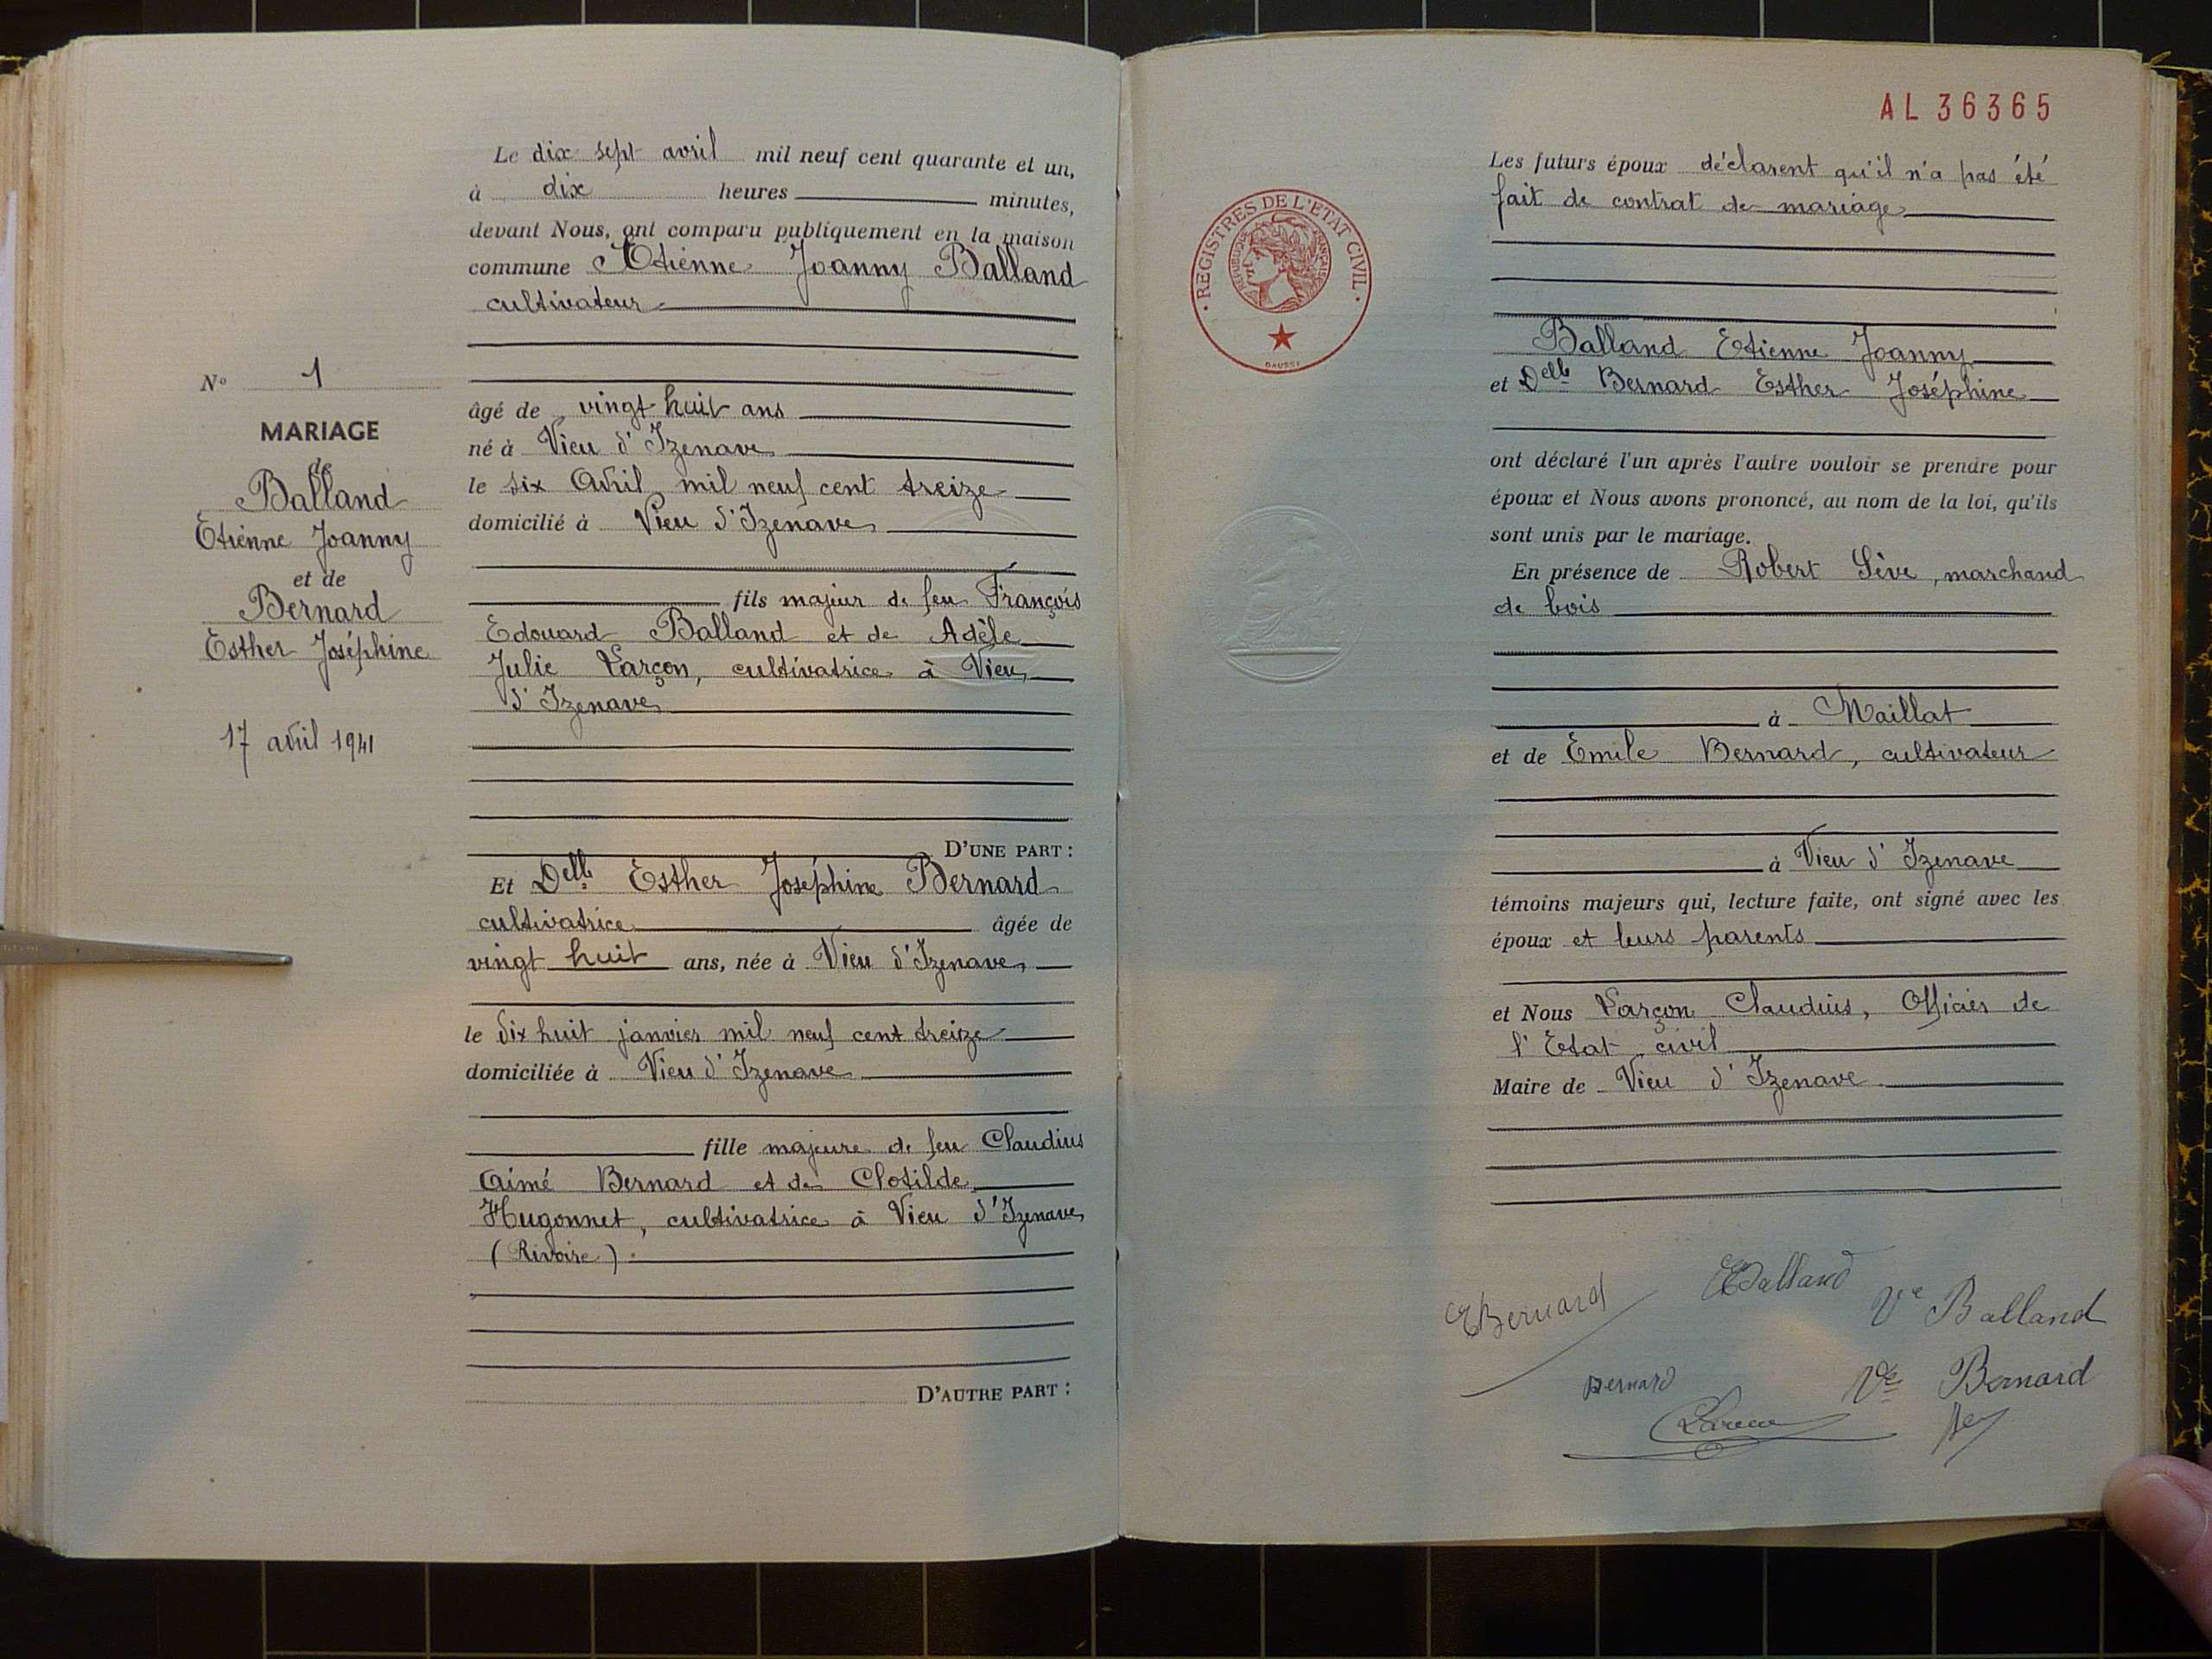 Le dix sept avril mil neuf cent quarante et un,
à dix heures minutes,
devant Nous, ont comparu publiquement en la maison
commune Etienne Joanny Balland
cultivateur
âgé de vingt huit ans
né à Vieu d'Izenave
le six Avril mil neuf cent treize
domicilié à Vieu d'Izenave
fils majeur de feu François
Edouard Balland et de Adèle
Julie Larçon, cultivatrice à Vieu
d'Izenave
D'UNE PART :
Et Delle Esther Joséphine Bernard
cultivatrice âgée de
vingt huit ans, née à Vieu d'Izenave
le dix huit janvier mil neuf cent treize
domiciliée à Vieu d'Izenave
fille majeure de feu Claudius
Aimé Bernard et de Clotilde
Hugonnet, cultivatrice à Vieu d'Izenave
(Rivoire).
D'AUTRE PART :
N° 1
MARIAGE
de
Balland
Etienne Joanny
et de
Bernard
Esther Joséphine
17 avril 1941
AL 36365
REGISTRES DE L'ETAT CIVIL
REPUBLIQUE FRANÇAISE
Les futurs époux déclarent qu'il n'a pas été
fait de contrat de mariage
Balland Etienne Joanny
et Delle Bernard Esther Joséphine
ont déclaré l'un après l'autre vouloir se prendre pour
époux et Nous avons prononcé, au nom de la loi, qu'ils
sont unis par le mariage.
En présence de Robert Sève, marchand
de bois
à Maillat
et de Emile Bernard, cultivateur
à Vieu d'Izenave
témoins majeurs qui, lecture faite, ont signé avec les
époux et leurs parents
et Nous Larçon Claudius, Officier de
l'Etat civil
Maire de Vieu d'Izenave
EBernard
EBalland
Ve Balland
Bernard
Ve Bernard